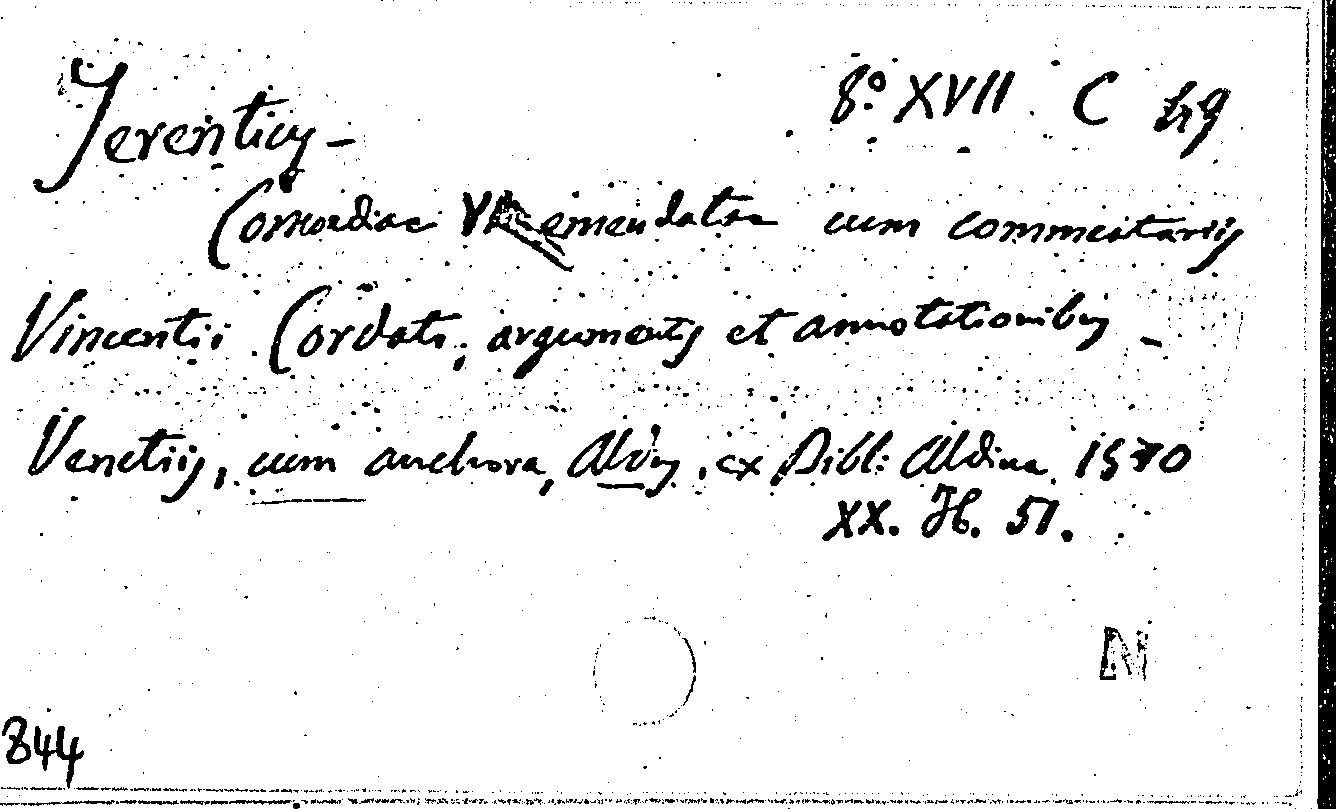 Terentius –
8° XVII C 49
Comoediae VI emendatae cum commentariis
Vincentii Cordati, argumentis et annotationibus –
Venetiis, cum anchora, Aldus, ex Bibl: Aldina 1570
XX. H. 51.
N
844